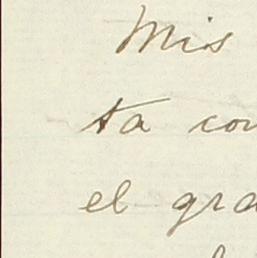 Mis
ta con
el gra